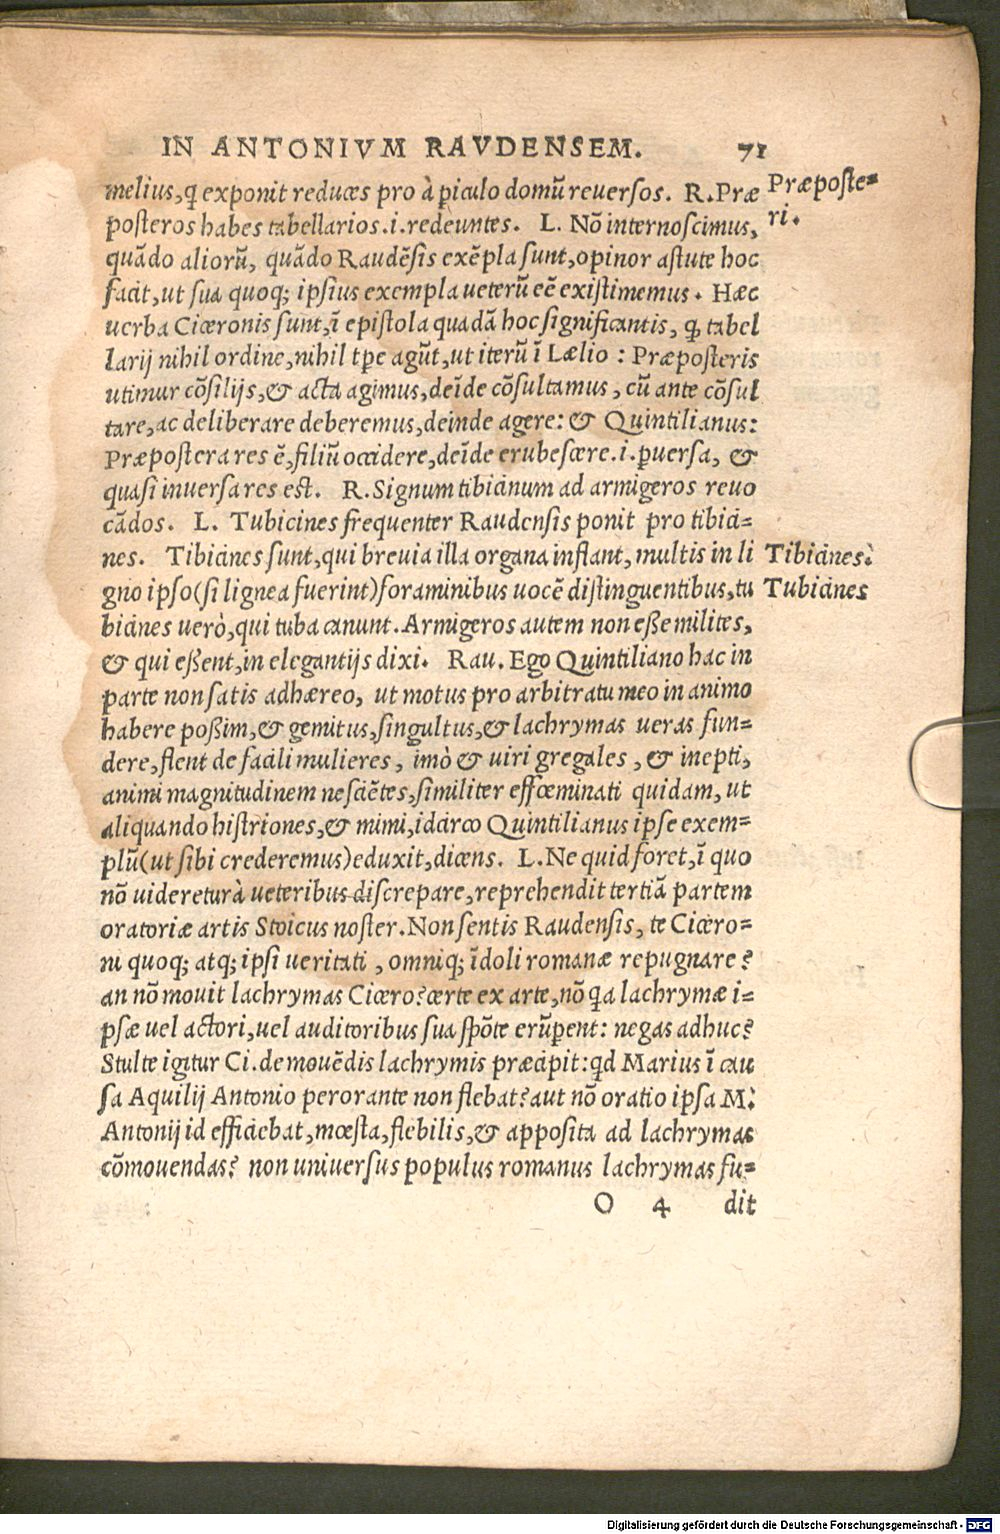 IN ANTONIVM RAVDENSEM. 71
melius, q exponit reduces pro à piculo domũ reuersos. R. Præ
Præposte=
ri.
posteros habes tabellarios .i. redeuntes. L. Nõ internoscimus,
quãdo aliorũ, quãdo Raudẽsis exẽpla sunt, opinor astute hoc
facit, ut sua quoq; ipsius exempla ueterũ eẽ existimemus. Hæc
uerba Ciceronis sunt, ĩ epistola quadã hoc significantis, ꝙ tabel
larij nihil ordine, nihil tpe agũt, ut iterũ ĩ Lælio : Præposteris
utimur cõsilijs, & acta agimus, deĩde cõsultamus, cũ ante cõsul
tare, ac deliberare deberemus, deinde agere: & Quintilianus:
Præpostera res ẽ, filiũ occidere, deĩde erubescere .i. ꝑuersa, &
quasi inuersa res est. R. Signum tibicinum ad armigeros reuo
cãdos. L. Tubicines frequenter Raudensis ponit pro tibici=
nes. Tibicines sunt, qui breuia illa organa inflant, multis in li
Tibicines:
gno ipso (si lignea fuerint) foraminibus uocẽ distinguentibus, tu
Tubicines
bicines uerò, qui tuba canunt. Armigeros autem non esse milites,
& qui essent, in elegantijs dixi. Rau. Ego Quintiliano hac in
parte non satis adhæreo, ut motus pro arbitratu meo in animo
habere possim, & gemitus, singultus, & lachrymas ueras fun=
dere, flent de facili mulieres, imò & uiri gregales, & inepti,
animi magnitudinem nesciẽtes, similiter effœminati quidam, ut
aliquando histriones, & mimi, idcirco Quintilianus ipse exem=
plũ (ut sibi crederemus) eduxit, dicens. L. Ne quid foret, ĩ quo
nõ uideretur à ueteribus discrepare, reprehendit tertiã partem
oratoriæ artis Stoicus noster. Non sentis Raudensis, te Cicero=
ni quoq; atq; ipsi ueritati, omniq; ĩdoli romanæ repugnare?
an nõ mouit lachrymas Cicero? certe ex arte, nõ qa lachrymæ i=
psæ uel actori, uel auditoribus sua spõte erũpent: negas adhuc?
Stulte igitur Ci. de mouẽdis lachrymis præcipit: qd Marius ĩ cau
sa Aquilij Antonio perorante non flebat? aut nõ oratio ipsa M.
Antonij id efficiebat, mœsta, flebilis, & apposita ad lachrymas
cõmouendas? non uniuersus populus romanus lachrymas fu=
O 4 dit
Digitalisierung gefördert durch die Deutsche Forschungsgemeinschaft - DFG